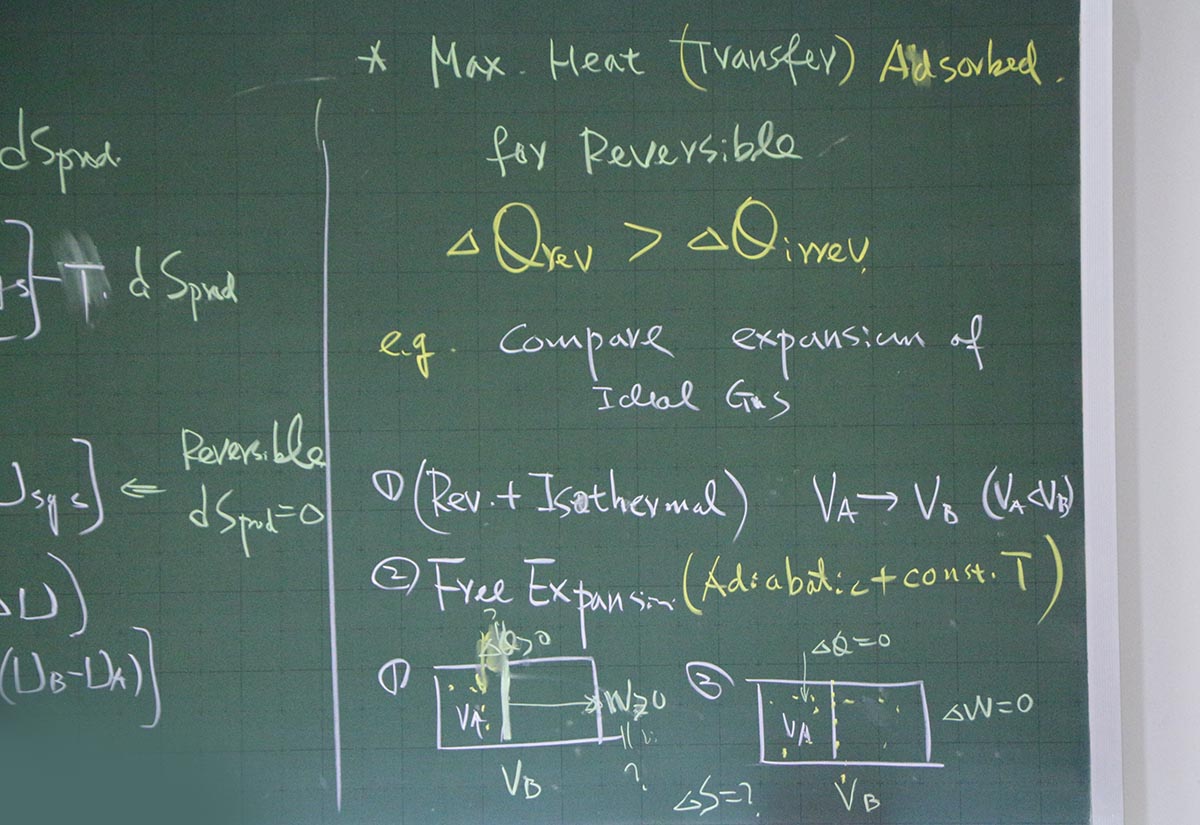 dSprod.
s]-T. dSprod
Reversible
Usys] ⇐ dSprod=0
ΔU)
(UB-UA)]
* Max. Heat (Transfer) Adsorbed.
for Reversible
ΔQrev > ΔQirrev.
e.g. Compare expansion of
Ideal Gas
① (Rev. + Isothermal) VA → VB (VA<VB)
② Free Expansion (Adiabatic + const. T)
?
ΔQ>0
① VA W≥0
VB
?
② ΔQ=0
VA ΔW=0
ΔS=?
VB